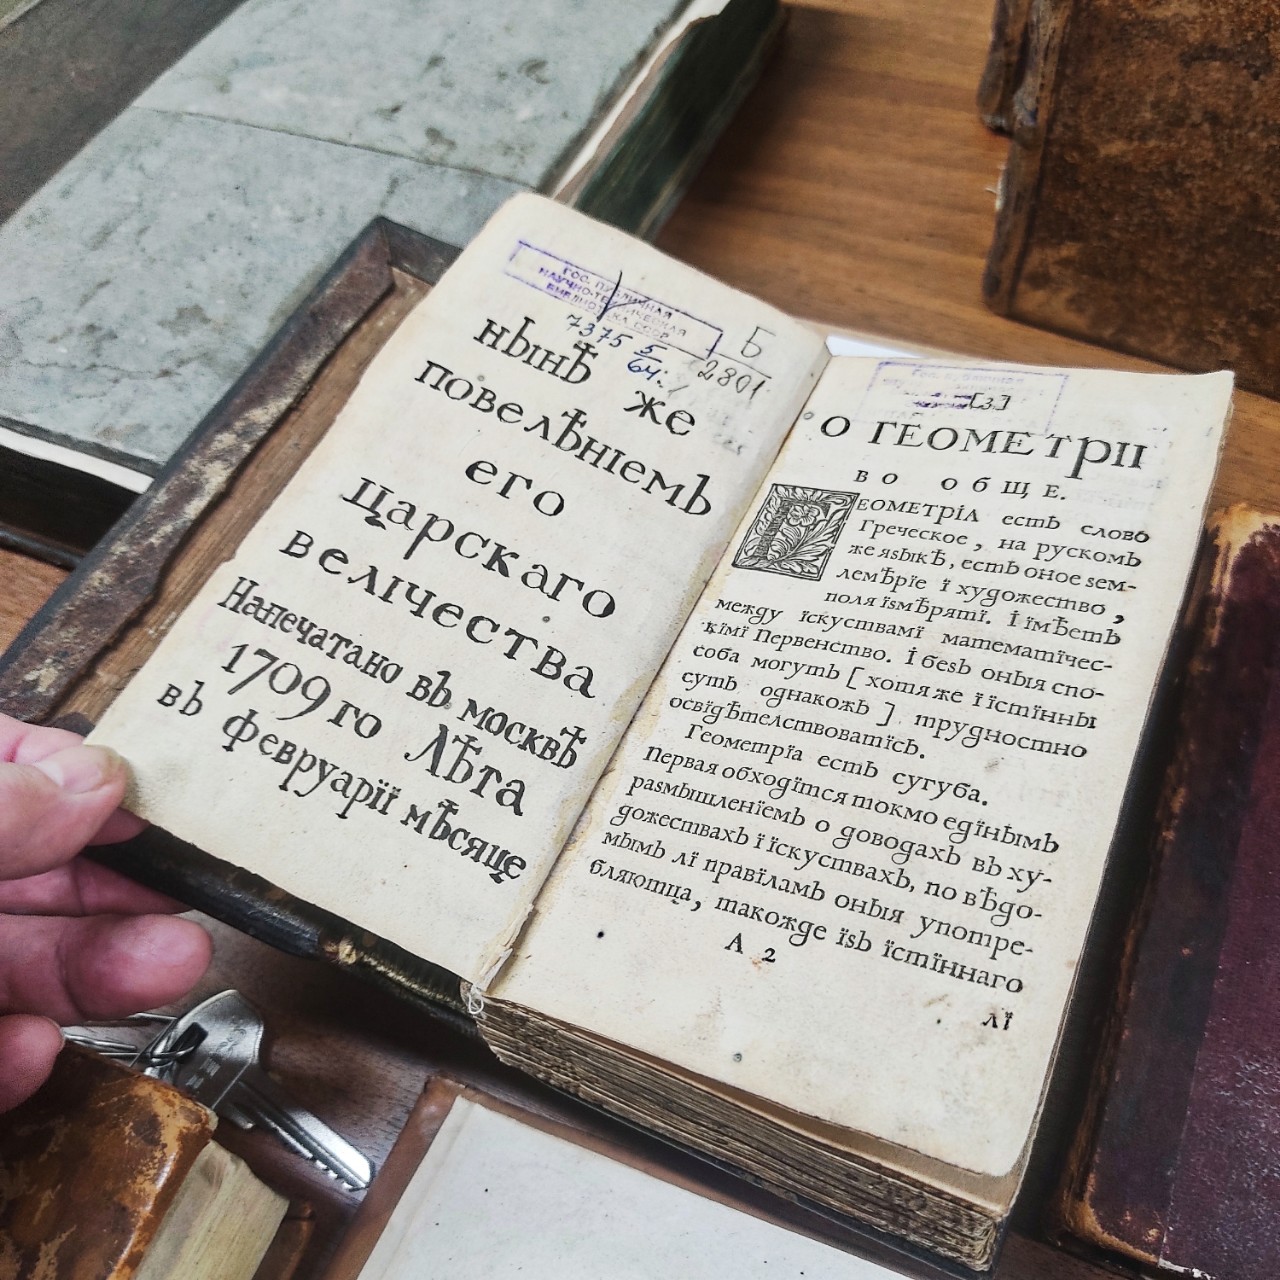 ГОС. ПУБЛИЧНАЯ
НАУЧНО-ТЕХНИЧЕСКАЯ
БИБЛИОТЕКА СССР
Б
7375 5/64. 2801
нынѣ же
повелѣніемъ
его
царскаго
велічества
Напечатано въ москвѣ
1709 го лѣта
въ февруарїї мѣсяце
[3]
О ГЕОМЕТРІІ
ВО ОБЩЕ.
ГЕОМЕТРІѦ есть слово
Греческое, на рускомъ
же яѕыкѣ, есть оное ѕем-
лемѣрїе ї художество,
поля їѕмѣрятї. І їмѣеть
между їскуствамї математїчес-
кїмї Первенство. І беѕъ оныя спо-
соба могуть [ хотя же ї їстїнны
суть однакожъ ] трудностно
освїдѣтелствоватїсь.
Геометрїа есть сугуба.
Первая обходїтся токмо едїнымъ
раѕмышленїемъ о доводахъ въ ху-
дожествахъ ї їскуствахъ, по вѣдо-
мымъ лї правїламъ оныя употре-
бляютца, такожде їѕъ їстїннаго
А 2
лї